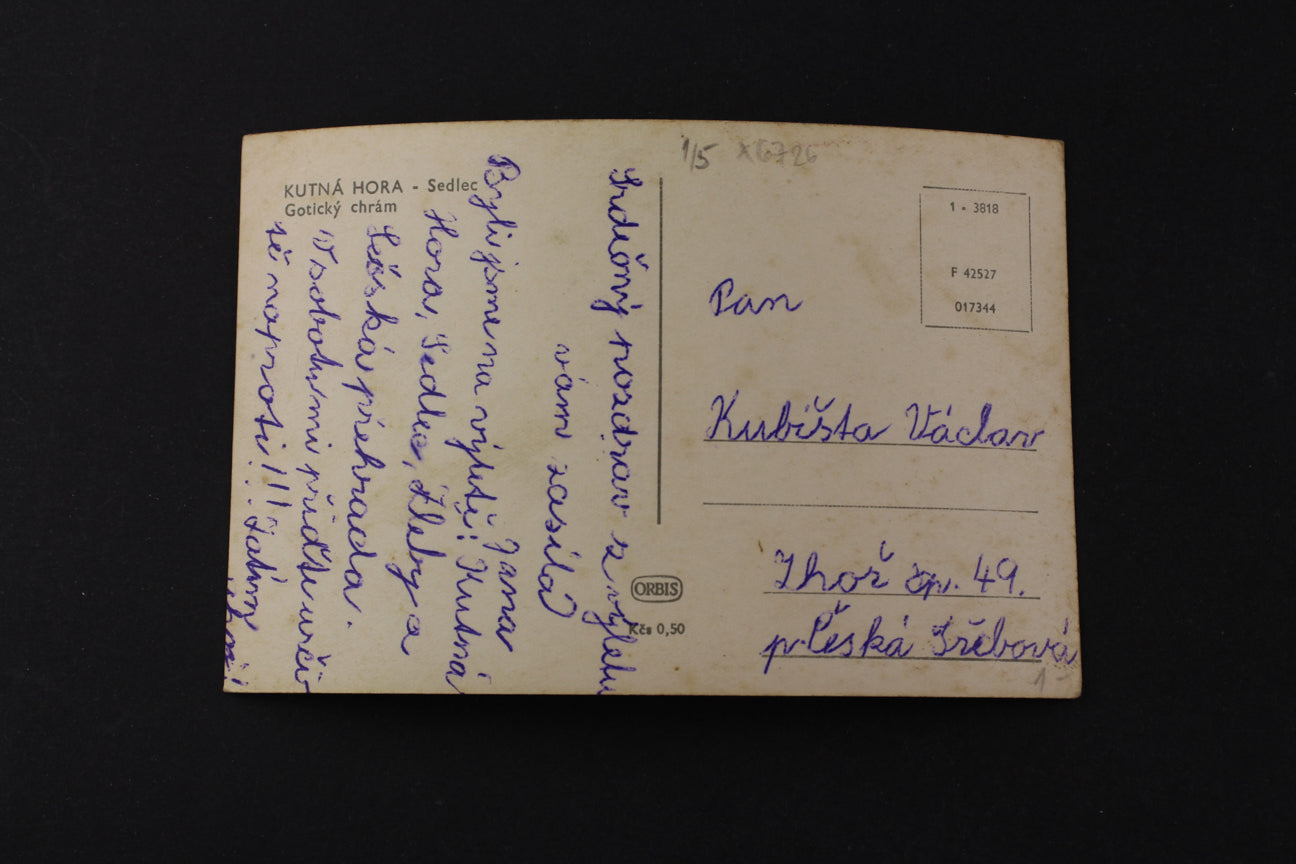 KUTNÁ HORA - Sedlec
Gotický chrám
Srdečný pozdrav z výletu
vám zasílá
Jana
Byli jsme na výletě: Kutná
Hora, Sedlec, Žleby a
Sečská přehrada.
V sobotu mi přijďte určitě
naproti!!! Zatím
ahoj
1/5 X6726
1 - 3818
F 42527
017344
Pan
Kubišta Václav
Lhoř čp. 49.
p. Česká Třebová
ORBIS
Kčs 0,50
1-